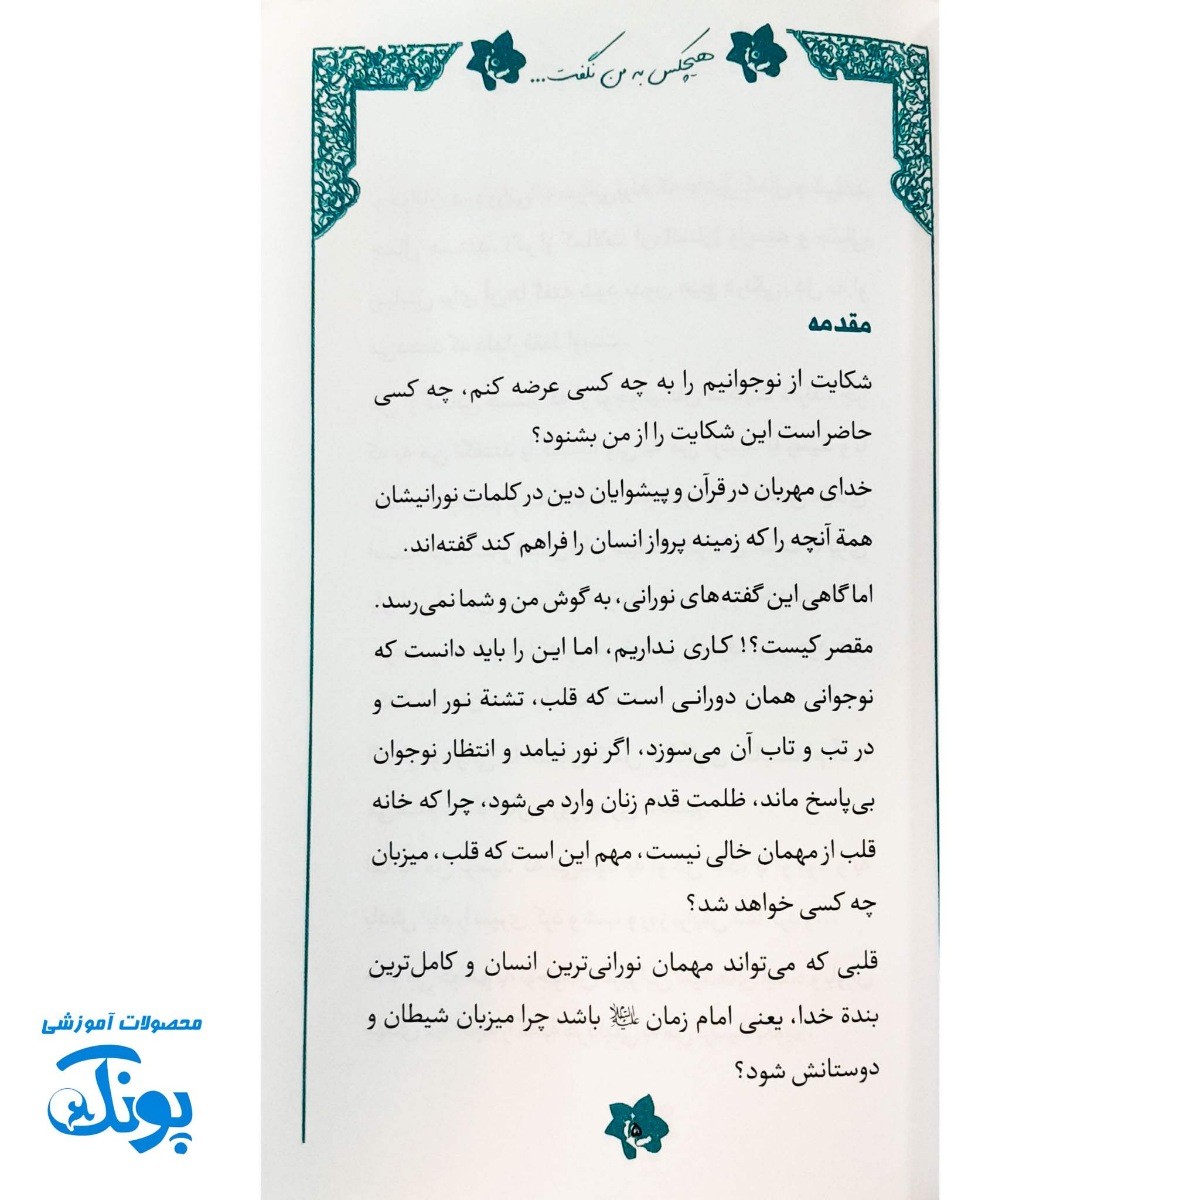 هیچکس به من نگفت...
مقدمه
شکایت از نوجوانیم را به چه کسی عرضه کنم، چه کسی
حاضر است این شکایت را از من بشنود؟
خدای مهربان در قرآن و پیشوایان دین در کلمات نورانیشان
همة آنچه را که زمینه پرواز انسان را فراهم کند گفته‌اند.
اما گاهی این گفته‌های نورانی، به گوش من و شما نمی‌رسد.
مقصر کیست؟! کاری نداریم، اما این را باید دانست که
نوجوانی همان دورانی است که قلب، تشنة نور است و
در تب و تاب آن می‌سوزد، اگر نور نیامد و انتظار نوجوان
بی‌پاسخ ماند، ظلمت قدم زنان وارد می‌شود، چرا که خانه
قلب از مهمان خالی نیست، مهم این است که قلب، میزبان
چه کسی خواهد شد؟
قلبی که می‌تواند مهمان نورانی‌ترین انسان و کامل‌ترین
بندة خدا، یعنی امام زمان علیه‌السلام باشد چرا میزبان شیطان و
دوستانش شود؟
۵
محصولات آموزشی
پونک